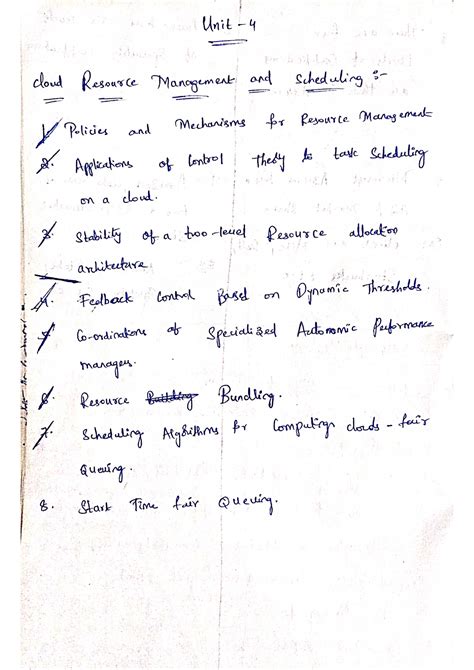 Unit - 4
Cloud Resource Management and Scheduling :-
1. Policies and Mechanisms for Resource Management
2. Applications of Control Theory to task Scheduling
on a cloud.
3. Stability of a two-level Resource allocation
architecture
4. Feedback Control Based on Dynamic Thresholds.
5. Co-ordination of Specialized Autonomic Performance
managers.
6. Resource Building Bundling.
7. Scheduling Algorithms for Computing clouds - fair
Queuing.
8. Start Time fair Queuing.